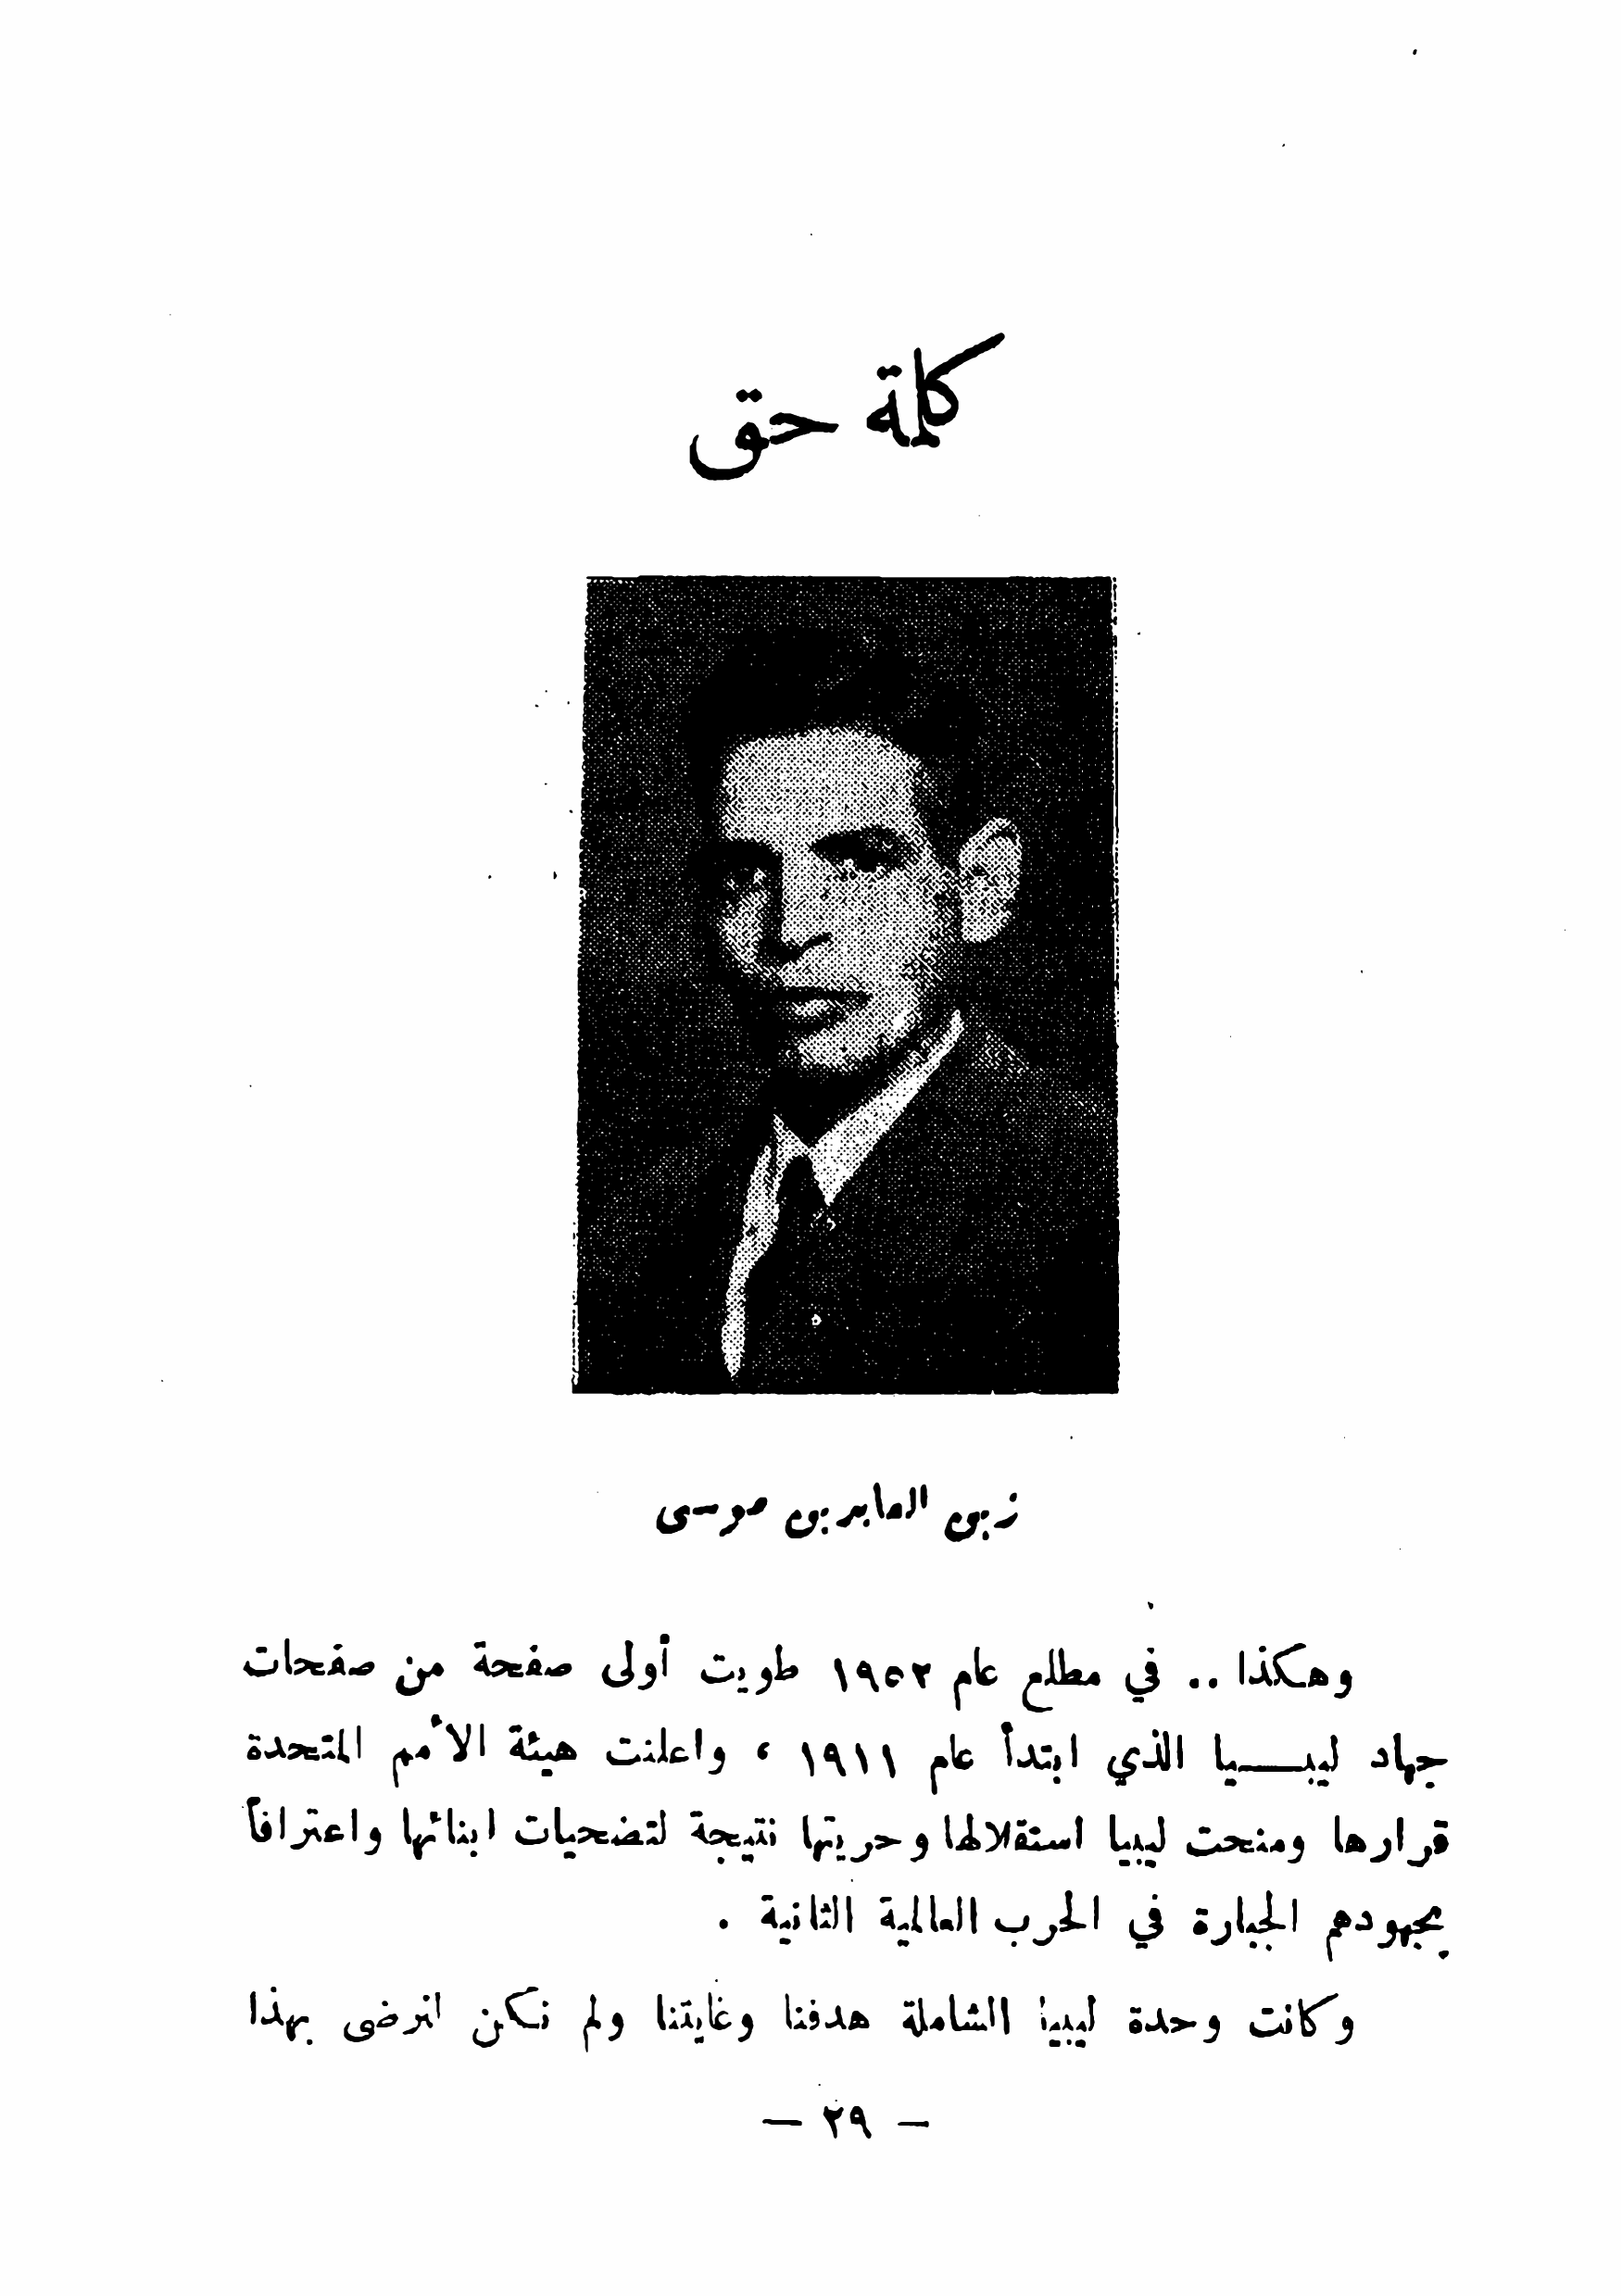 كلمة حق
زين العابدين موسى
وهكذا .. في مطلع عام ١٩٥٢ طويت أولى صفحة من صفحات
جهاد ليبـــيا الذي ابتدأ عام ١٩١١ ، واعلنت هيئة الأمم المتحدة
قرارها ومنحت ليبيا استقلالها وحريتها نتيجة لتضحيات ابنائها واعترافاً
بمجهودهم الجبارة في الحرب العالمية الثانية .
وكانت وحدة ليبيا الشاملة هدفنا وغايتنا ولم نكن لنرضى بهذا
— ٢٩ —